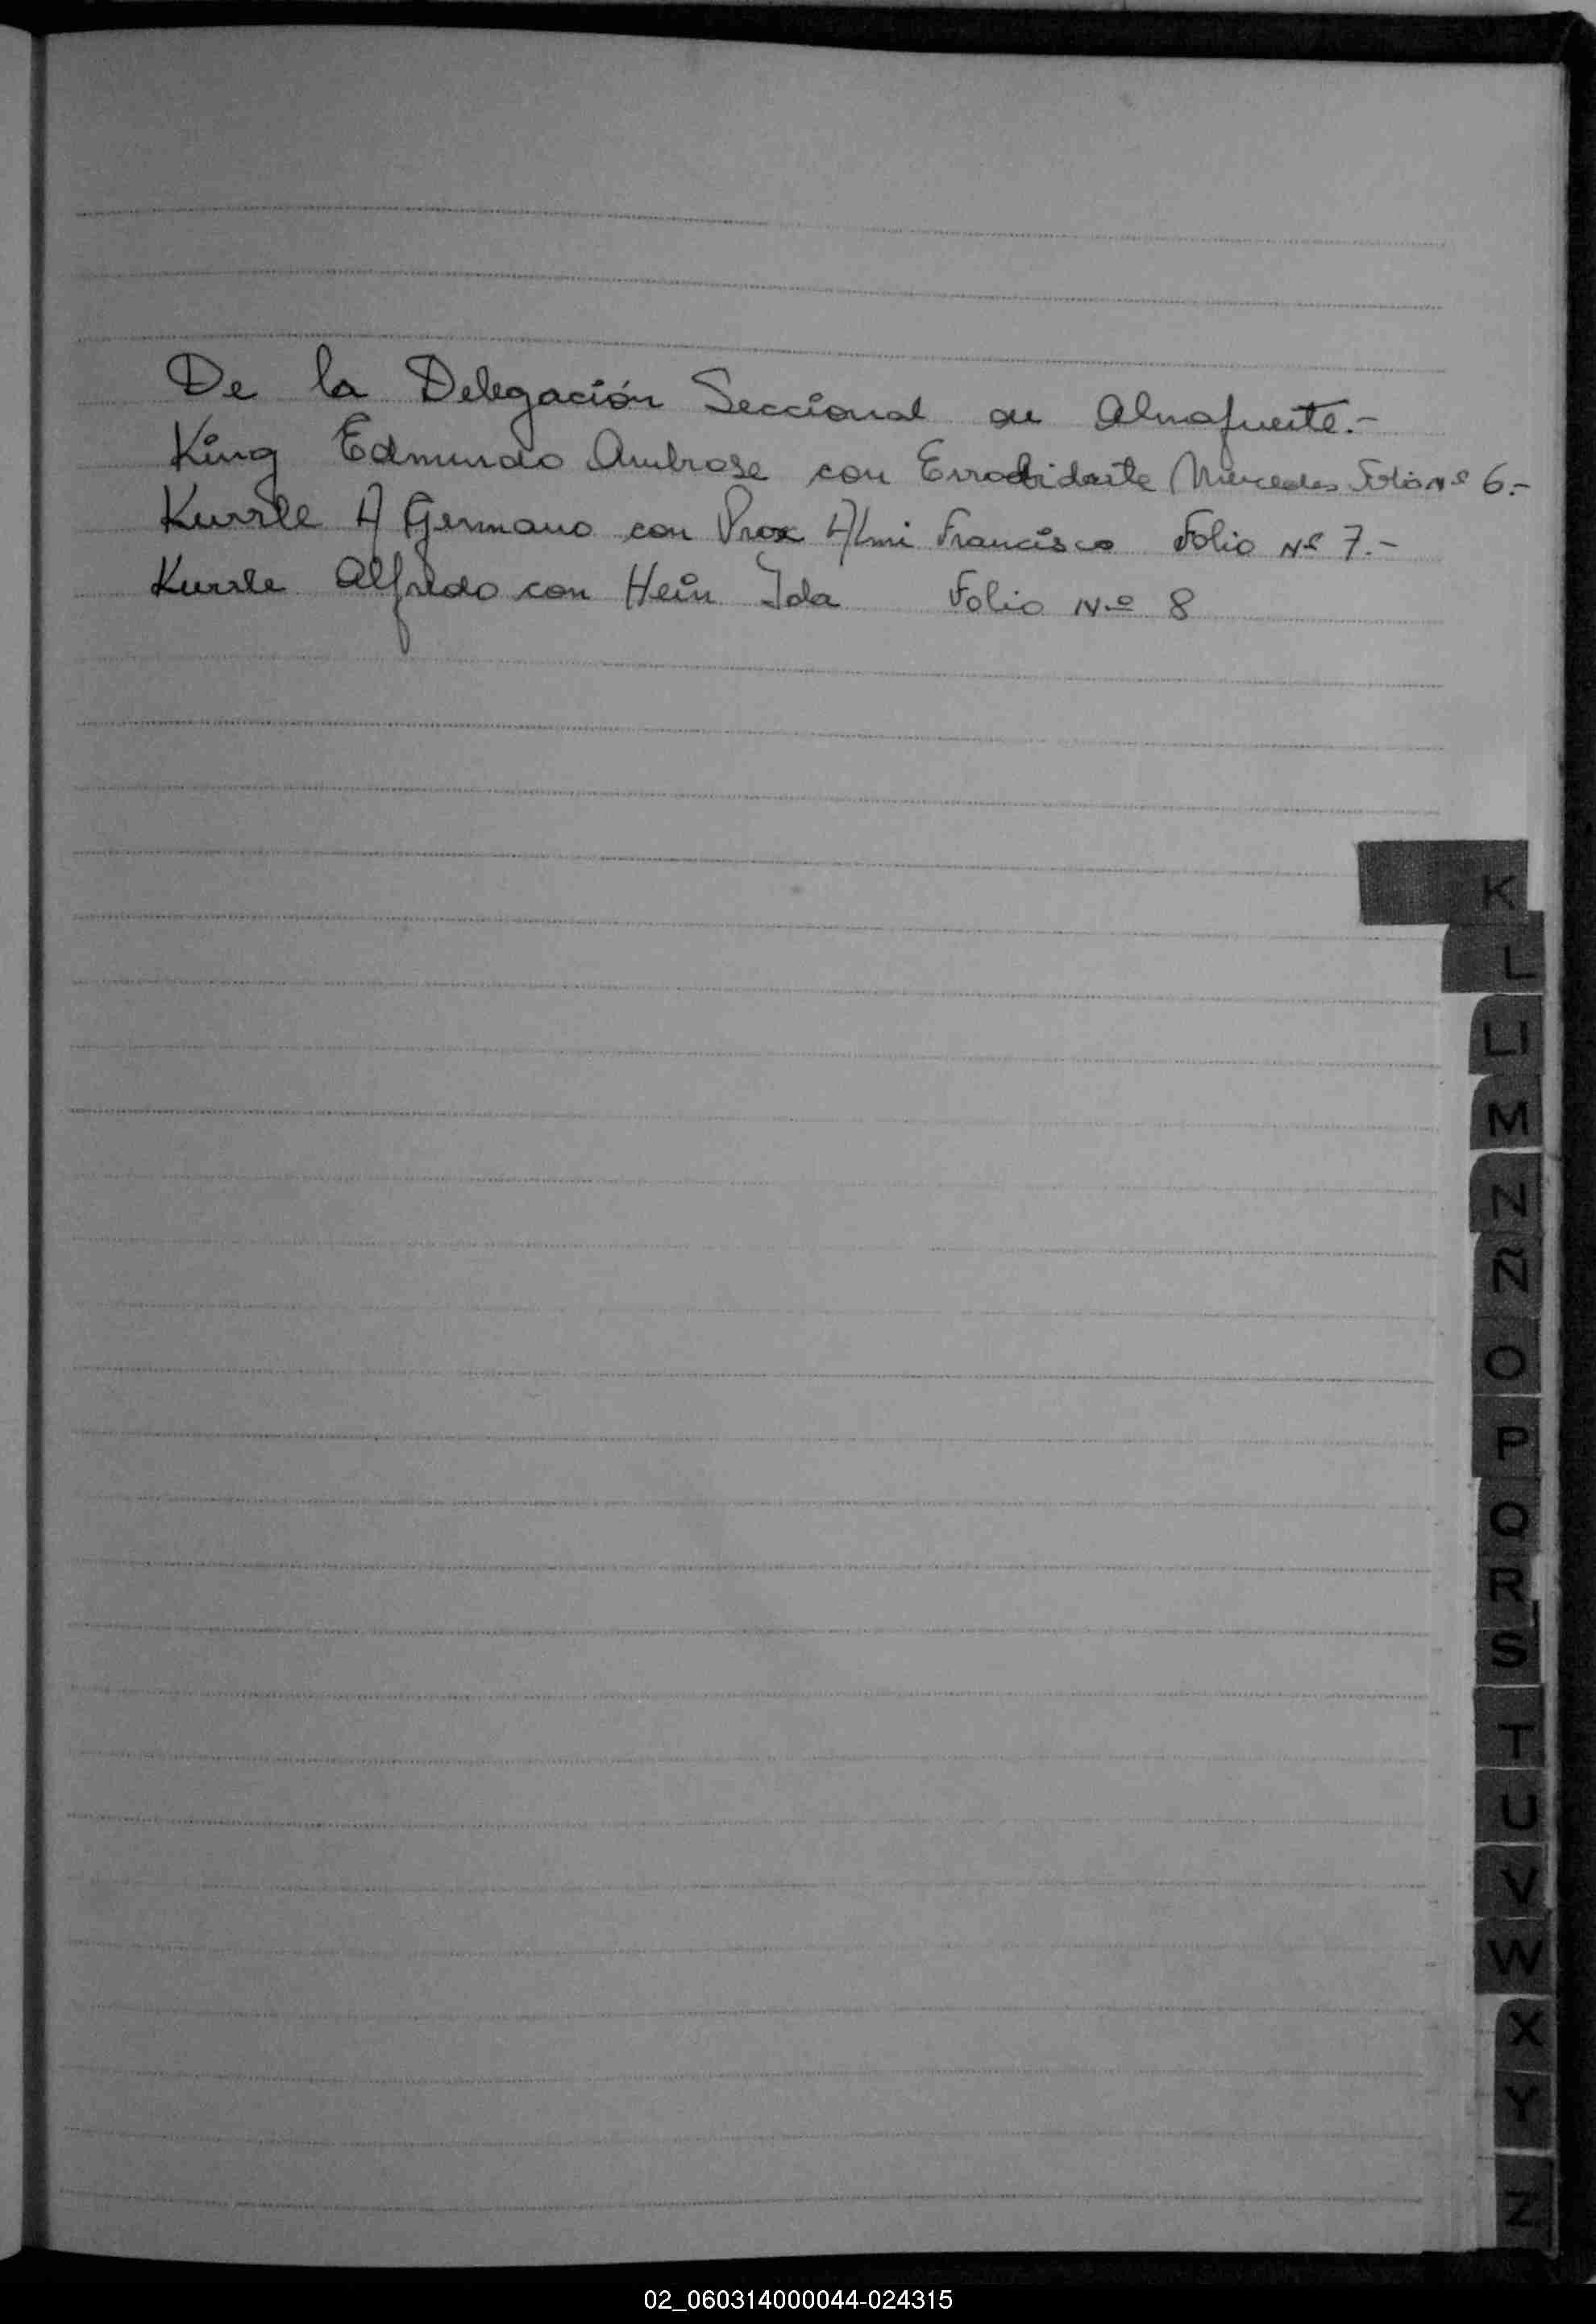 De la Delegación Seccional en Almafuerte.-
King Edmundo Ambrose con Mercedes Folio Nº 6.-
Kurrle A Germano con Prox Almi Francisco Folio Nº 7.-
Kurrle Alfredo con Hein Ida Folio Nº 8
K
L
Ll
M
N
Ñ
O
P
Q
R
S
T
U
V
W
X
Y
Z
02_060314000044-024315